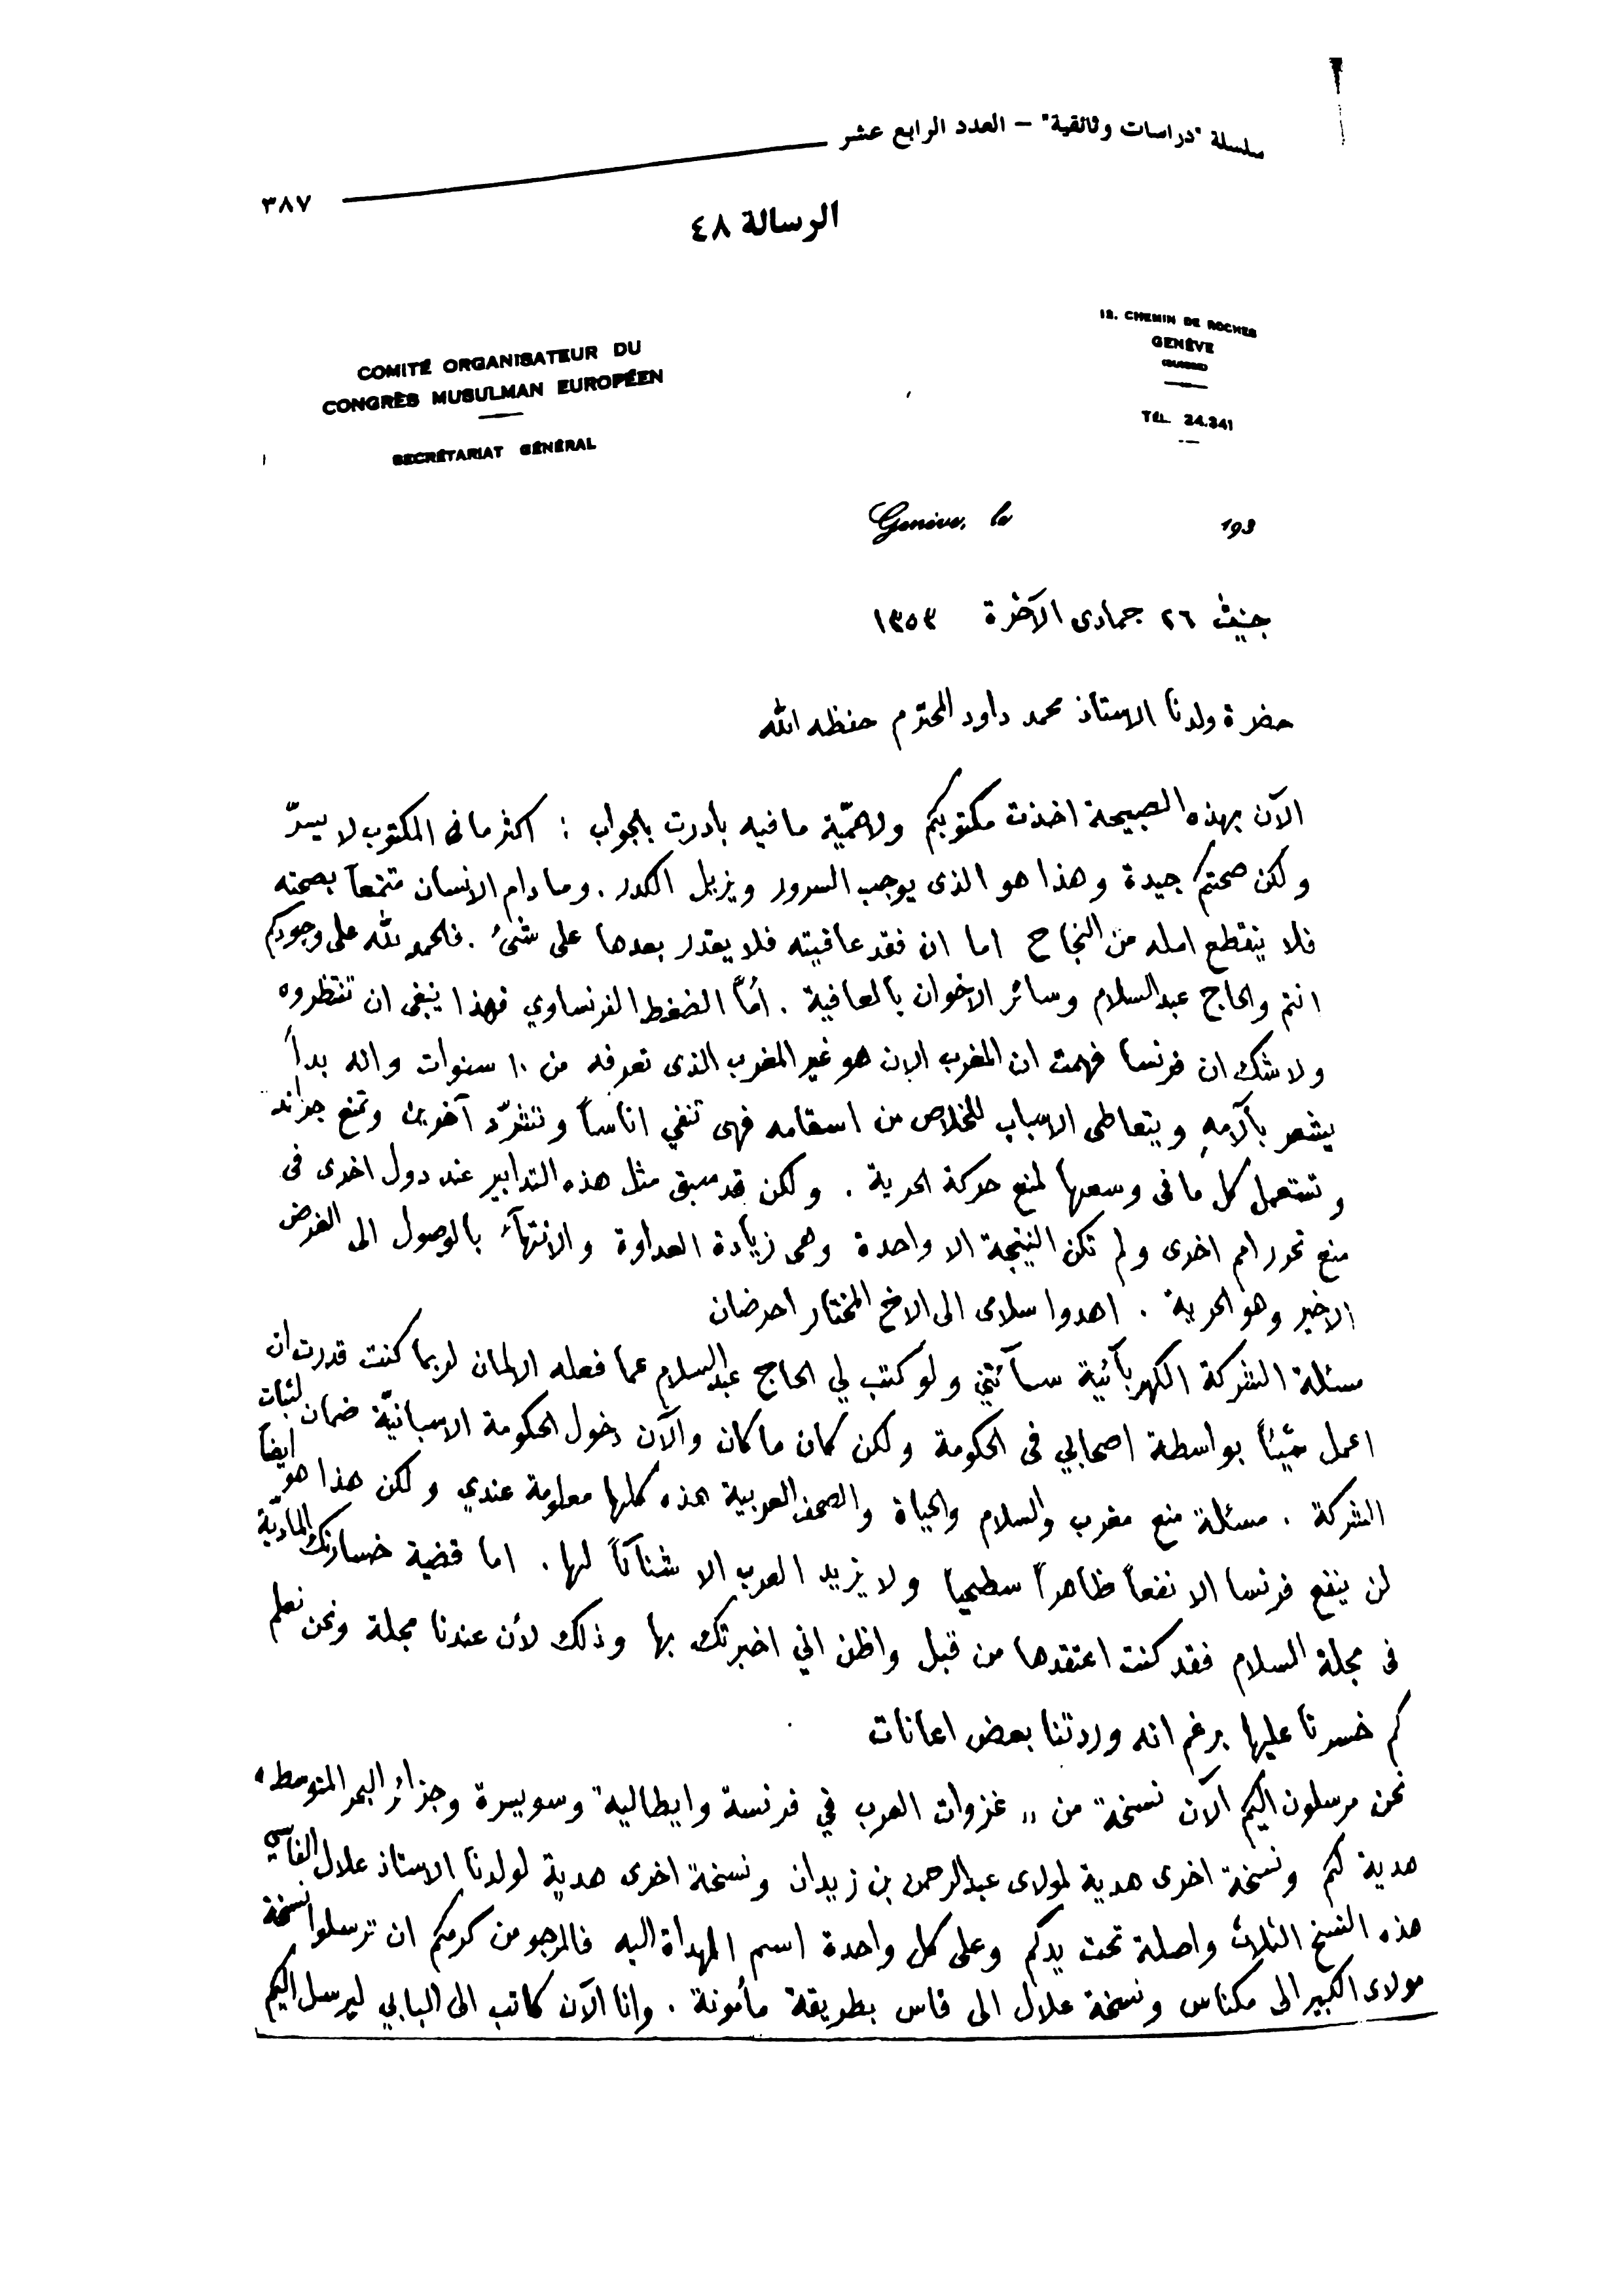 سلسلة "دراسات وثائقية" – العدد الرابع عشر
٣٨٧
الرسالة ٤٨
COMITÉ ORGANISATEUR DU
CONGRÈS MUSULMAN EUROPÉEN
SECRÉTARIAT GÉNÉRAL
12. CHEMIN DE ROCHES
GENÈVE
TÉL. 24.341
Genève, le 193
جنيف ٢٦ جمادى الآخرة ١٣٥٣
حضرة ولدنا الاستاذ محمد داود المحترم حفظه الله
الآن بهذه الصبيحة اخذت مكتوبكم ولاهمّية ما فيه بادرت بالجواب : اكثر ما فى المكتوب لا يسرّ
ولكن صحتكم جيدة وهذا هو الذى يوجب السرور ويزيل الكدر . وما دام الانسان متمتعاً بصحته
فلا ينقطع امله من النجاح اما ان فقد عافيته فلا يقدر بعدها على شئ . فالحمد لله على وجودكم
انتم والحاج عبد السلام وسائر الاخوان بالعافية . امّا الضغط الفرنساوي فهذا ينبغى ان تنتظروه
ولا شك ان فرنسا فهمت ان المغرب الان هو غير المغرب الذى تعرفه من ١٠ سنوات وانه بدأ
يشعر بآلامه ويتعاطى الاسباب للخلاص من اسقامه فهى تنفي اناساً وتشرّد آخرين وتمنع جرائد
وتستعمل كل ما فى وسعها لمنع حركة الحرية . ولكن قد سبق مثل هذه التدابير عند دول اخرى فى
منع تحرر امم اخرى ولم تكن النتيجة الا واحدة وهى زيادة العداوة والانتهآء بالوصول الى الغرض
الاخير وهو الحرية . اهدوا سلامى الى الاخ المختار احرضان
مسئلة الشركة الكهربآئية سآئتني ولو كتب لي الحاج عبد السلام عما فعله الالمان لربما كنت قدرت ان
اعمل شيئاً بواسطة اصحابي فى الحكومة ولكن كان ما كان والآن دخول الحكومة الاسبانيّة ضمان لثبات
الشركة . مسئلة منع مغرب والسلام والحياة والصحف العربية هذه كلها معلومة عندي ولكن هذا هو ايضاً
لن ينفع فرنسا الا نفعاً ظاهراً سطحياً ولا يزيد العرب الا شنآناً لها . اما قضية خسارتك المادّية
فى مجلة السلام فقد كنت اعتقدها من قبل واظن اني اخبرتك بها وذلك لأن عندنا مجلة ونحن نعلم
كم خسرنا عليها برغم انه وردتنا بعض اعانات
نحن مرسلون اليكم الآن نسخة من « غزوات العرب في فرنسة وايطالية وسويسرة وجزائر البحر المتوسط »
هدية لكم ونسخة اخرى هدية لمولاى عبد الرحمن بن زيدان ونسخة اخرى هدية لولدنا الاستاذ علال الفاسي
هذه النسخ الثلاث واصلة تحت يدكم وعلى كل واحدة اسم المهداة اليه فالمرجو من كرمكم ان ترسلوا نسخة
مولاى الكبير الى مكناس ونسخة علال الى فاس بطريقة مأمونة . وانا الآن كاتب الى البابي ليرسل اليكم